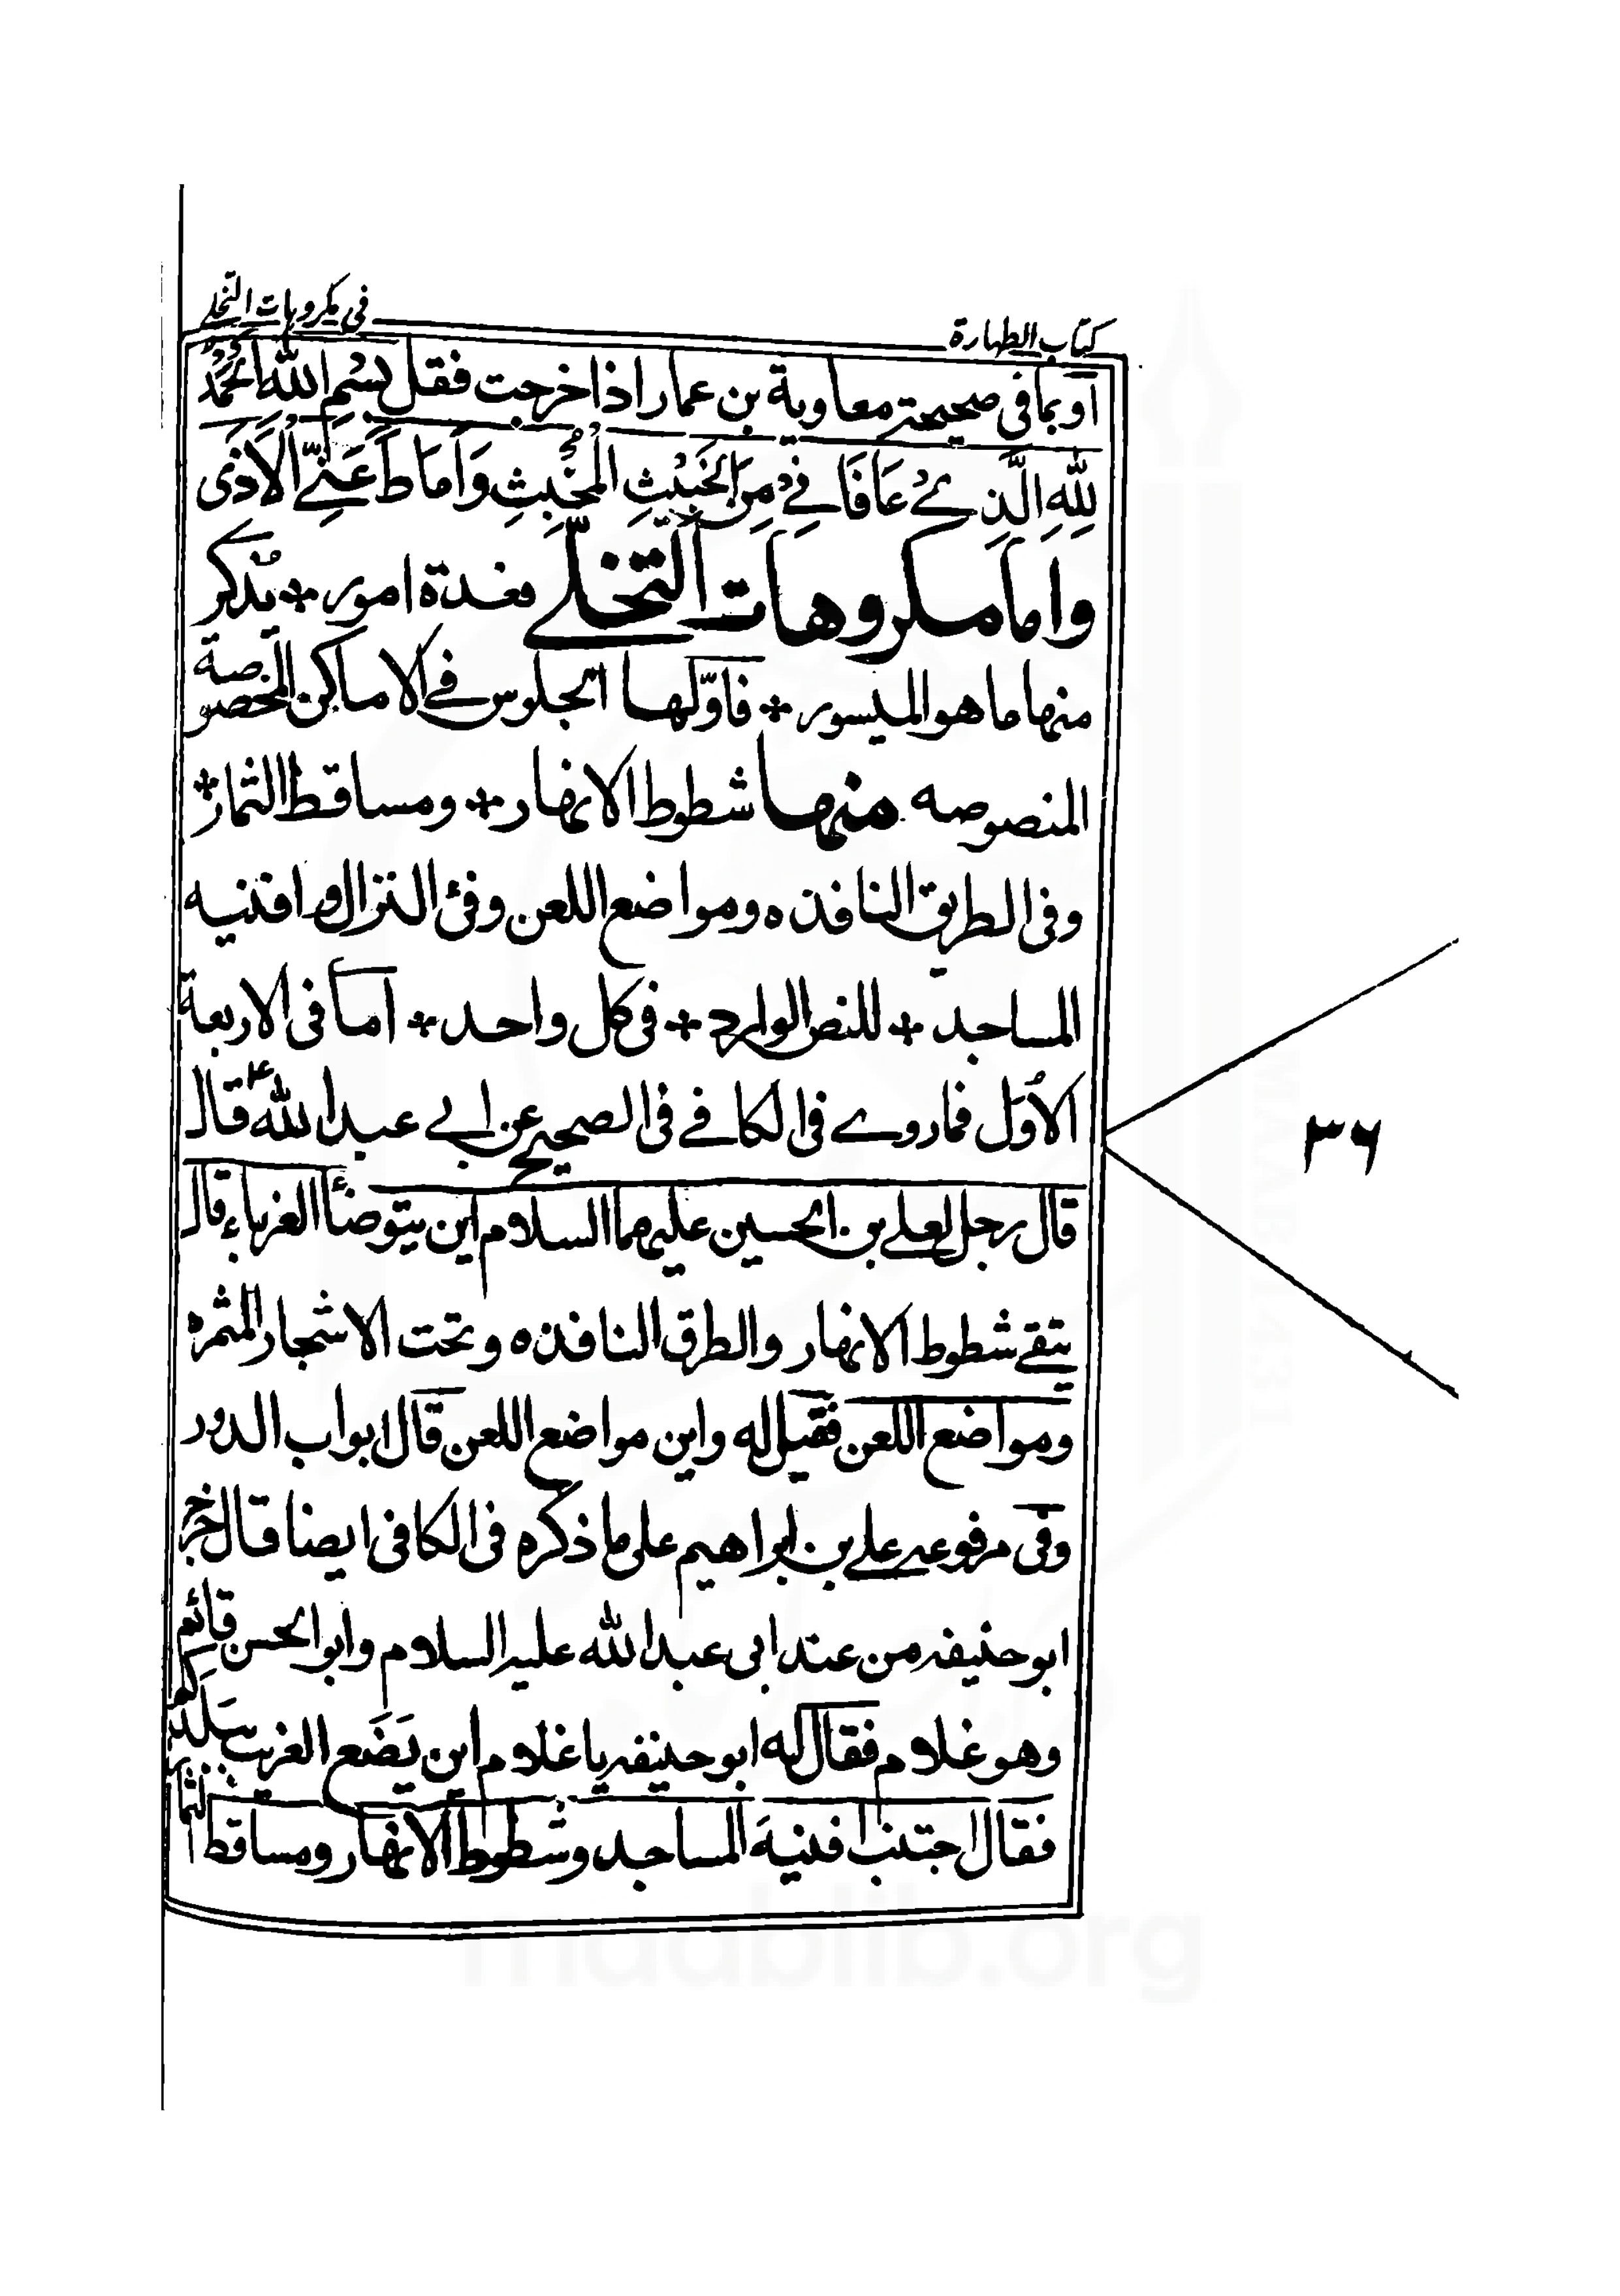 كتاب الطهارة
في مكروهات التخلي
او بما في صحيحة معاوية بن عمار اذا خرجت فقل بِسْمِ اللهِ اَلْحَمْدُ
لِلّٰهِ الَّذِيْ عَافَانِيْ مِنَ الْخَبِيْثِ الْمُخْبِثِ وَاَمَاطَ عَنِّي الْاَذٰى
واما مكروهات التخلّے فعدة امور * يذكر
منها ما هو الميسور * فاوّلها الجلوس في الاماكن المخصوصة
المنصوصه منها شطوط الانهار * ومساقط الثمار *
وفى الطريق النافذه ومواضع اللعن وفئ النزال وافنيه
المساجد * للنص الوارد * فى كل واحد * اما فى الاربعة
الاُوَل فما روے فى الكافے فى الصحيح عن ابے عبد الله ع قال
قال رجل لعلے بن الحسين عليهما السلام اين يتوضأ الغرباء قال
يتقے شطوط الانهار والطرق النافذه وتحت الاشجار المثمره
ومواضع اللعن فقيل له واين مواضع اللعن قال ابواب الدور
وفى مرفوعه علے بن ابراهيم على ما ذكره فى الكافى ايضا قال خرج
ابو حنيفه من عند ابى عبد الله عليه السلام وابو الحسن قائم
وهو غلام فقال له ابو حنيفه يا غلام اين يَضَع الغريب ببلدكم
فقال اجتنب افنيةَ المساجد وشُطوط الانهار ومساقط الثمار
٣٦
maablib.org
MAAB 1431